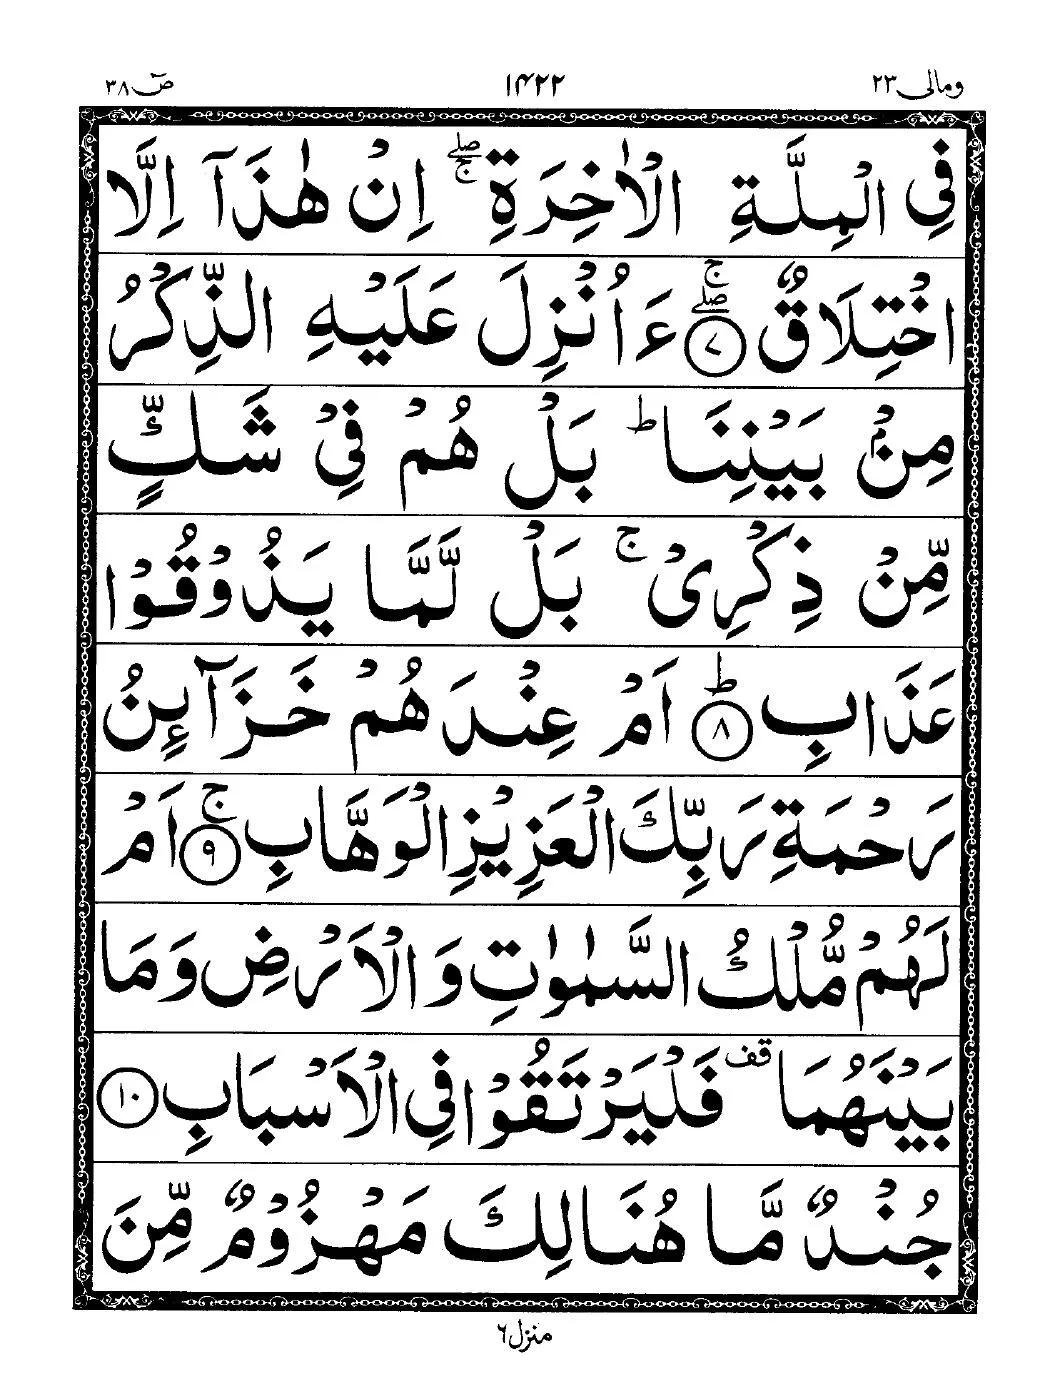 ومالی ٢٣ ١٤٢٢ صٓ ٣٨
فِی الْمِلَّةِ الْاٰخِرَةِ ۖۚ اِنْ هٰذَاۤ اِلَّا
اخْتِلَاقٌ ۖۚ ﴿٧﴾ ءَاُنْزِلَ عَلَیْهِ الذِّكْرُ
مِنْۢ بَیْنِنَا ؕ بَلْ هُمْ فِیْ شَكٍّ
مِّنْ ذِكْرِیْ ۚ بَلْ لَّمَّا یَذُوْقُوْا
عَذَابِ ؕ ﴿٨﴾ اَمْ عِنْدَهُمْ خَزَآىِٕنُ
رَحْمَةِ رَبِّكَ الْعَزِیْزِ الْوَهَّابِ ۚ ﴿٩﴾ اَمْ
لَهُمْ مُّلْكُ السَّمٰوٰتِ وَ الْاَرْضِ وَ مَا
بَیْنَهُمَا قف فَلْیَرْتَقُوْا فِی الْاَسْبَابِ ﴿١٠﴾
جُنْدٌ مَّا هُنَالِكَ مَهْزُوْمٌ مِّنَ
منزل ٦